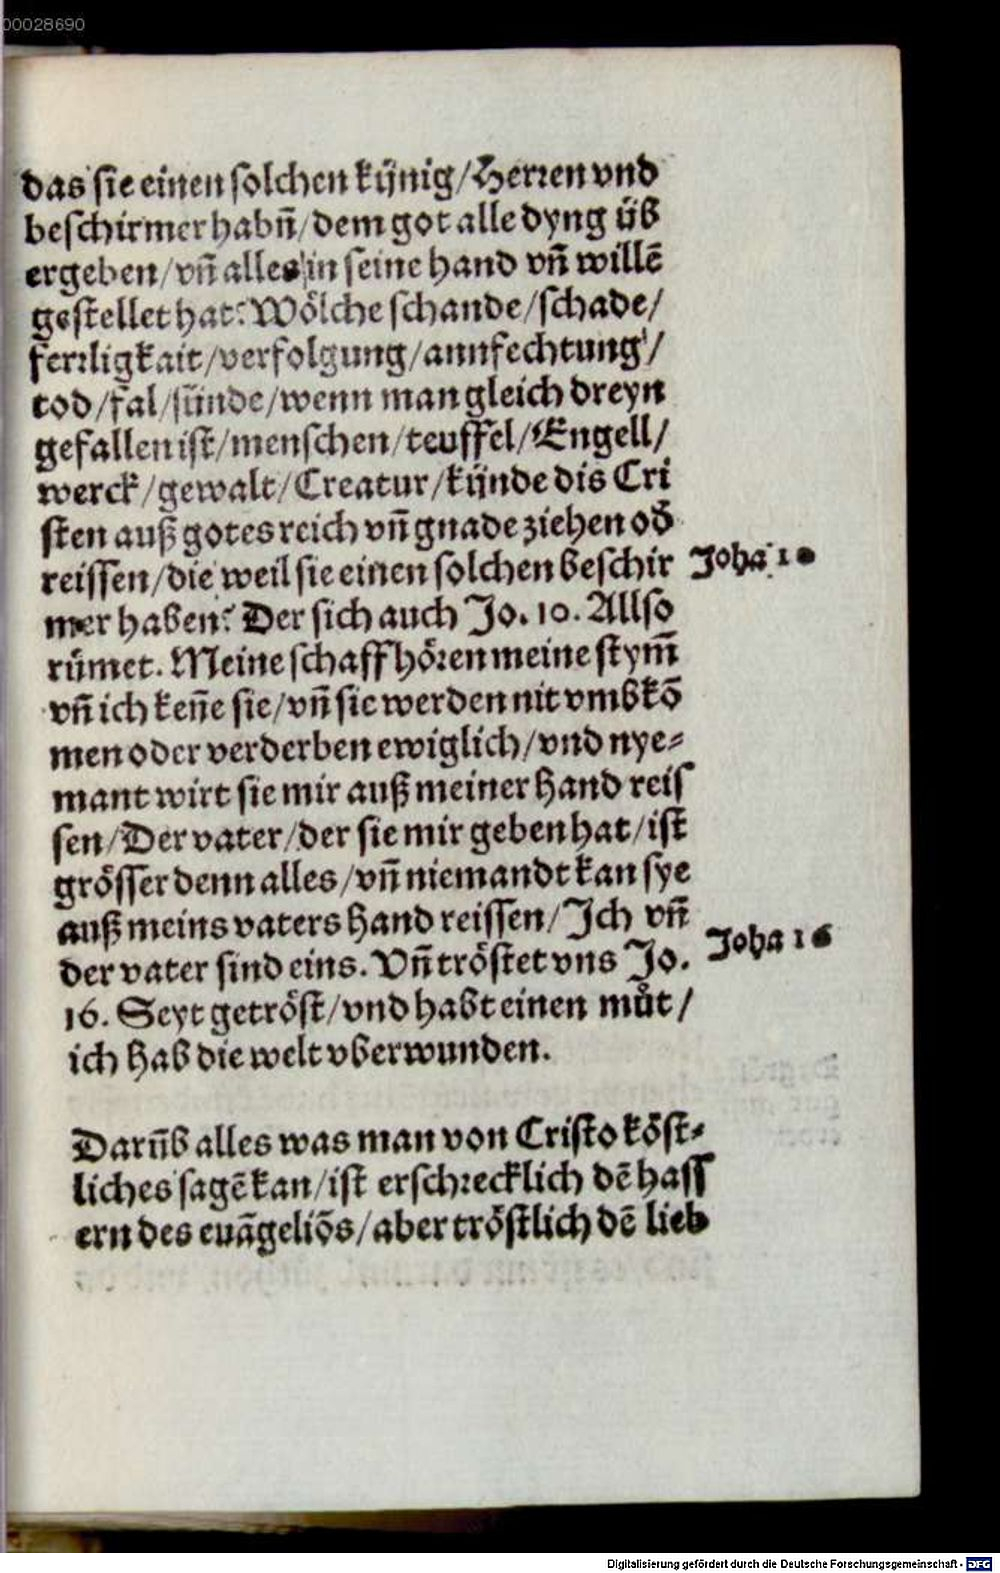 00028690
das sie einen solchen künig/Herren vnd
beschirmer habn̄/dem got alle dyng üb
ergeben/vn̄ alles in seine hand vn̄ willē
gestellet hat? Wölche schande/schade/
ferrligkait/verfolgung/annfechtung/
tod/fal/sünde/wenn man gleich dreyn
gefallen ist/menschen/teuffel/Engell/
werck/gewalt/Creatur/künde dis Cri
sten auß gotes reich vn̄ gnade ziehen od̄
reissen/die weil sie einen solchen beschir
mer haben? Der sich auch Jo. 10. Allso
rümet. Meine schaff hören meine stym̄
vn̄ ich ken̄e sie/vn̄ sie werden nit vmbkō
men oder verderben ewiglich/vnd nye⸗
mant wirt sie mir auß meiner hand reis
sen/Der vater/der sie mir geben hat/ist
grösser denn alles/vn̄ niemandt kan sye
auß meins vaters hand reissen/Jch vn̄
der vater sind eins. Vn̄ tröstet vns Jo.
16. Seyt getröst/vnd habt einen můt/
ich hab die welt vberwunden.
Joha 10
Joha 16
Darūb alles was man von Cristo köst⸗
liches sagē kan/ist erschrecklich dē hass
ern des euāgeliōs/aber tröstlich dē lieb
Digitalisierung gefördert durch die Deutsche Forschungsgemeinschaft - DFG